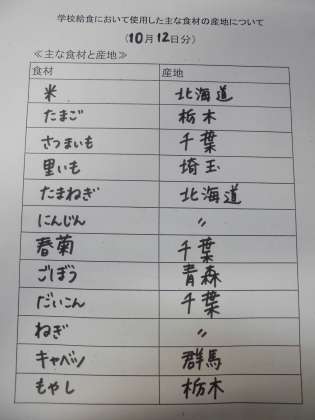 学校給食において使用した主な食材の産地について
(10月12日分)
≪主な食材と産地≫
食材 産地
米 北海道
たまご 栃木
さつまいも 千葉
里いも 埼玉
たまねぎ 北海道
にんじん 〃
春菊 千葉
ごぼう 青森
だいこん 千葉
ねぎ 〃
キャベツ 群馬
もやし 栃木